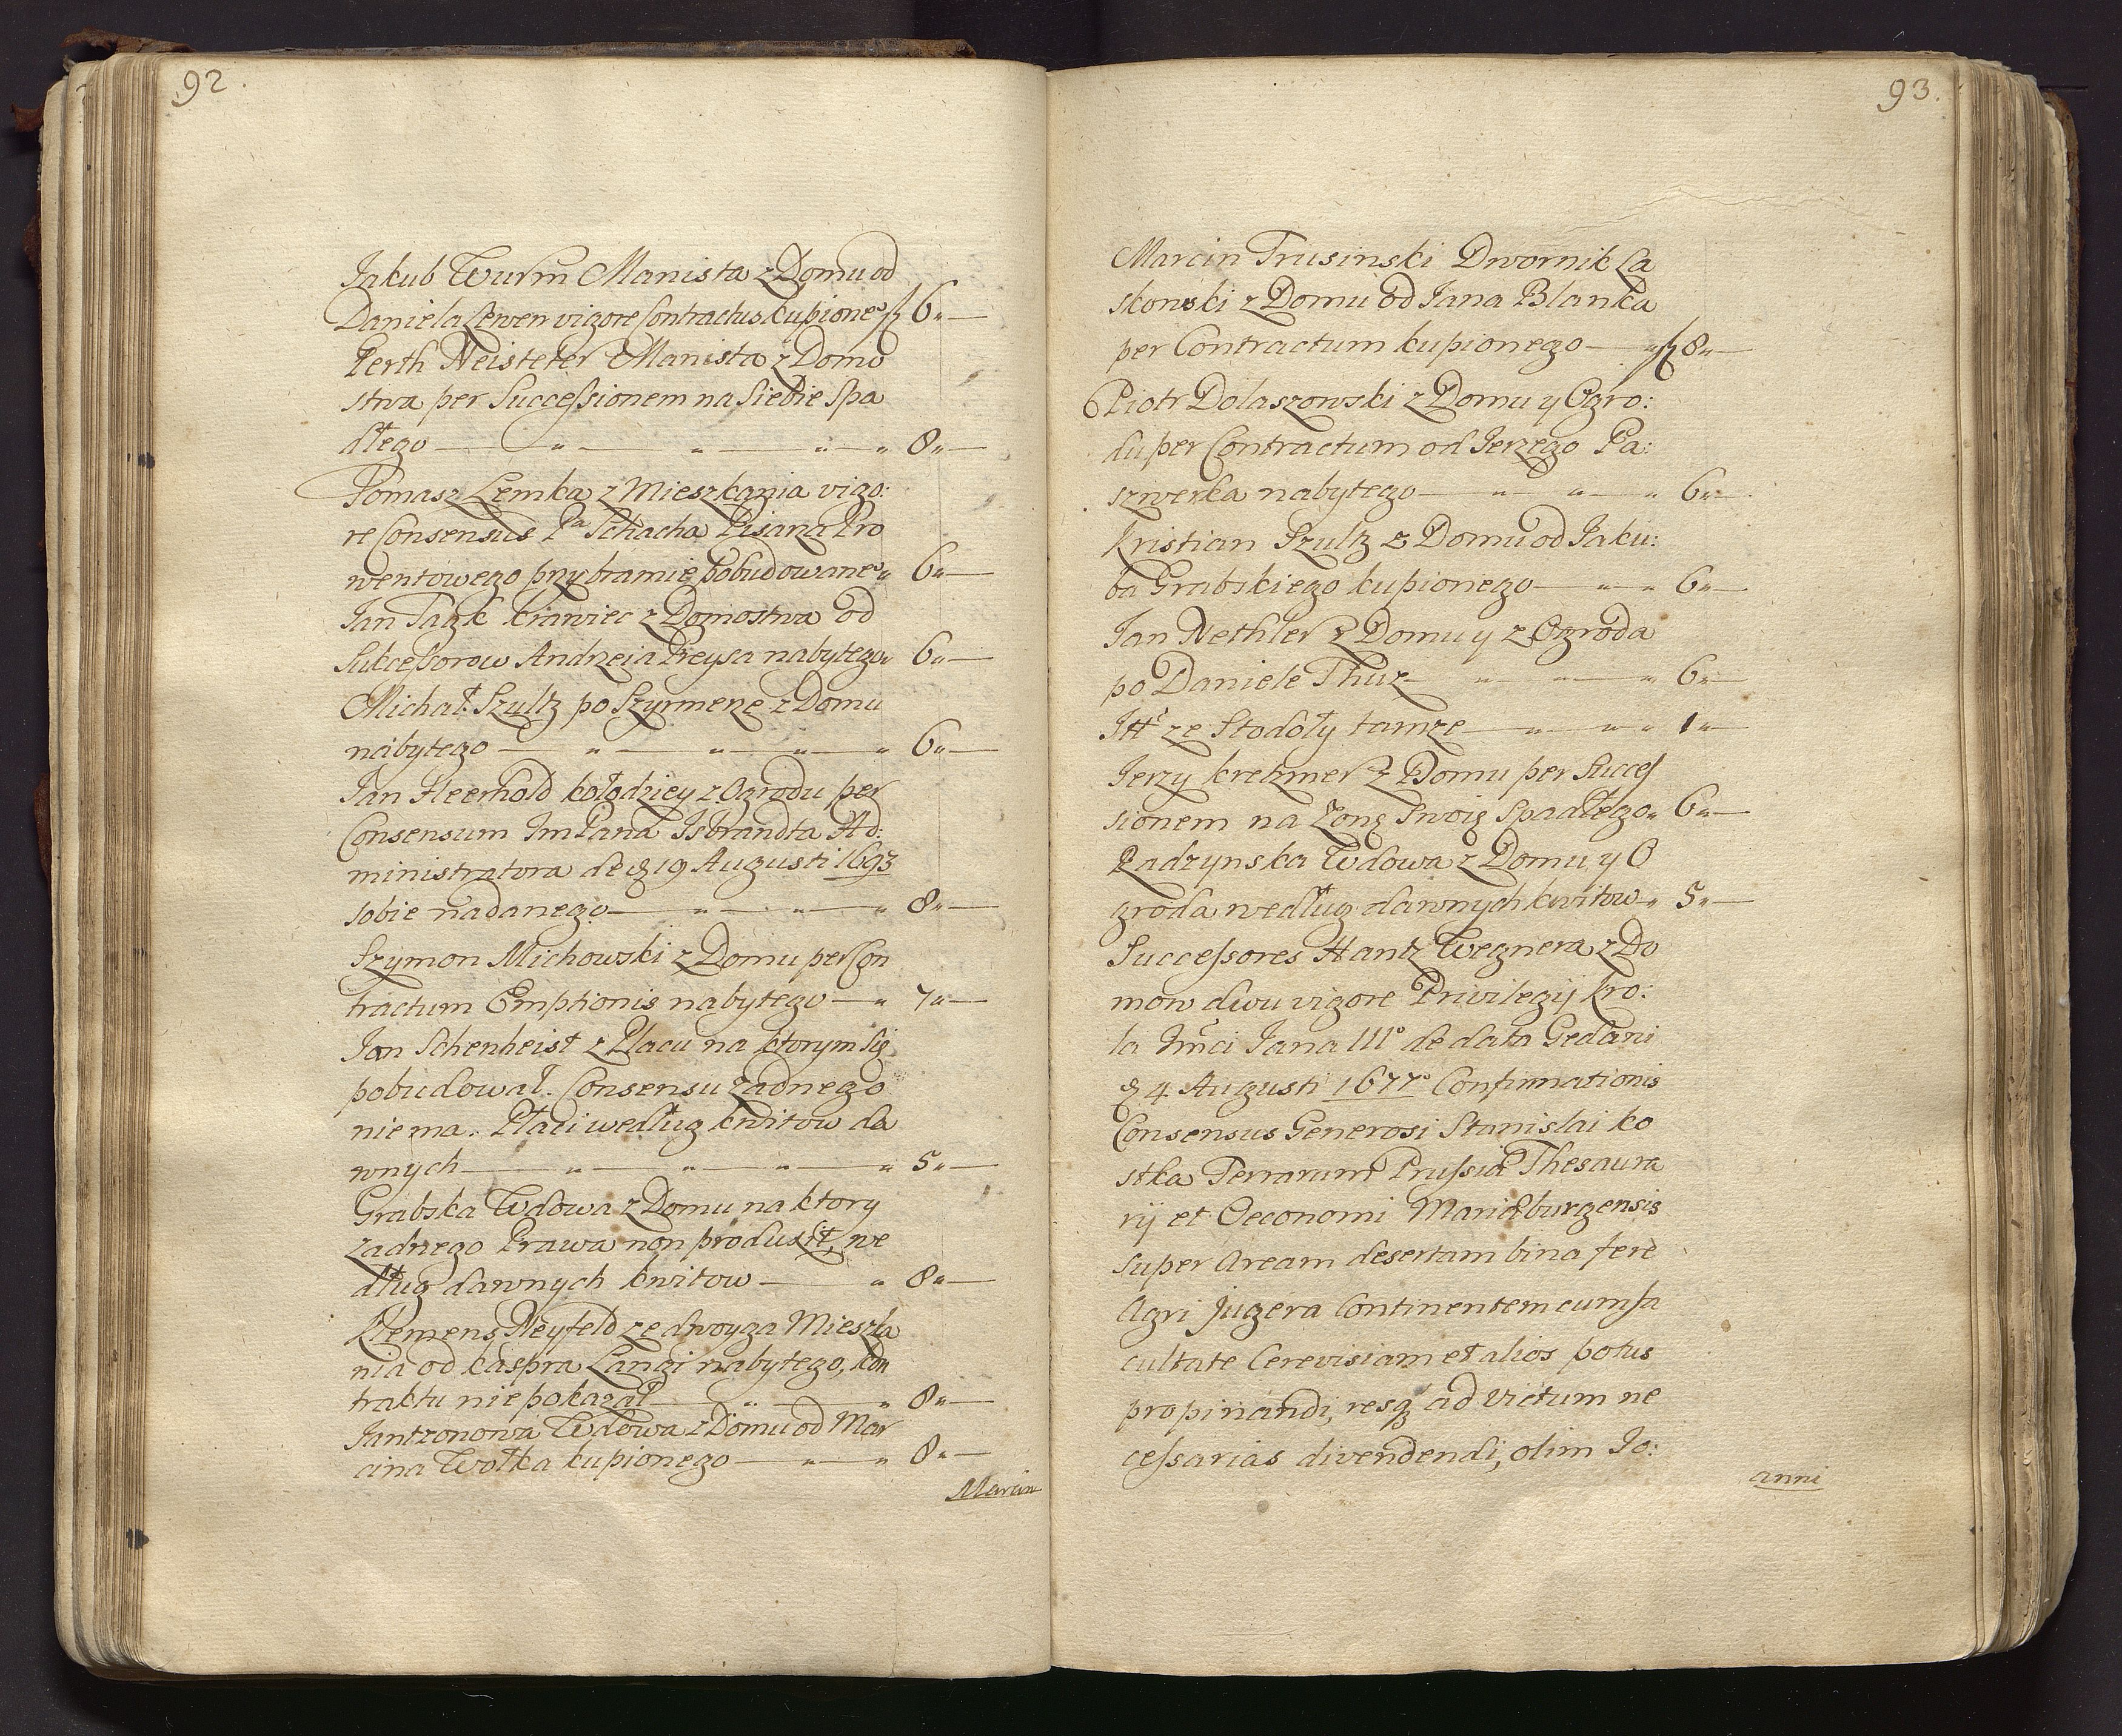 92.
Jakub Wurm Manista z Domu od
Daniela Lewen vigore Contractus kupione° fl 6 „ —
Perth Neisteter Manista z Domo
stwa per Successionem na Siebie Spa
dłego — „ — „ — „ — „ 8 „ —
Tomasz Lemka z Mieszkania vigo:
re Consensus Pa Schacha Pisarza Pro
wentowego przy bramie pobudowane° „ 6 „ —
Jan Tagk krawiec z Domostwa od
Sukcessorow Andrzeia Preysa nabytego „ 6 „ —
Michał Szultz po Szyrmerze z Domu
nabytego — „ — „ — „ — „ 6 „ —
Jan Heerhold kołodziey z Ogrodu per
Consensum Jm Pana Isbrandta Ad:
ministratora de d 19 Augusti 1693
sobie nadanego — „ — „ — „ 8 „ —
Szymon Michowski z Domu per Con
tractum Emptionis nabytego — „ 7 „ —
Jan Schenheist z Placu na ktorym się
pobudował. Consensu żadnego
nie ma. Płaci według kwitow da
wnych — „ — „ — „ — „ 5 „ —
Grabska Wdowa z Domu na ktory
żadnego Prawa non produxit, we
dług dawnych kwitow — „ 8 „ —
Klemens Neyfeld ze dwoyga Mieszka
nia od kaspra Langi nabytego, kon
traktu nie pokazał — „ — „ 8 „ —
Jantzonowa Wdowa z Domu od Mar
cina Wołka kupionego — „ — „ 8 „ —
Marcin
93.
Marcin Trusinski Dwornik La
skowski z Domu od Jana Blanka
per Contractum kupionego — „ fl 8 „ —
Piotr Dolaszowski z Domu y Ogro:
du per Contractum od Jerzego Pa:
szwerka nabytego — „ — „ — „ 6 „ —
Kristian Szultz z Domu od Jaku:
ba Grabskiego kupionego — „ — „ 6 „ —
Jan Nethler z Domu y z Ogroda
po Daniele Thur — „ — „ — „ 6 „ —
Itt ze Stodoły tamze — „ — „ — „ 1 „ —
Jerzy kretzmer z Domu per Succes
sionem na Zonę Swoię Spadłego „ 6 „ —
Radzynska Wdowa z Domu y O
groda według dawnych kwitow „ 5 „ —
Successores Hantz Wegnera z Do
mow dwu vigore Privilegij kro:
la Jmci Jana III° de data Gedani
d 4 Augusti 1677° Confirmationis
Consensus Generosi Stanislai ko
stka Terrarum Prussiæ Thesaura
rij et Oeconomi Mariæburgensis
super Aream desertam bina fere
Agri Jugera Continentem cum fa
cultate Cerevisiam et alios potus
propinandi, resq ad victum ne
cessarias divendendi, olim Jo:
anni